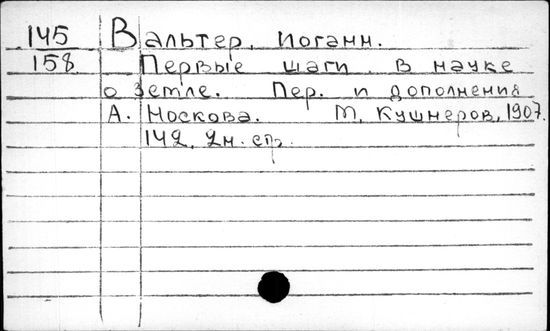 145 Вальтер, Иоганн.
158 Первые шаги в науке
о Земле. Пер. и дополнения
А. Носкова. М, Кушнеров, 1907.
142, 2н. стр.